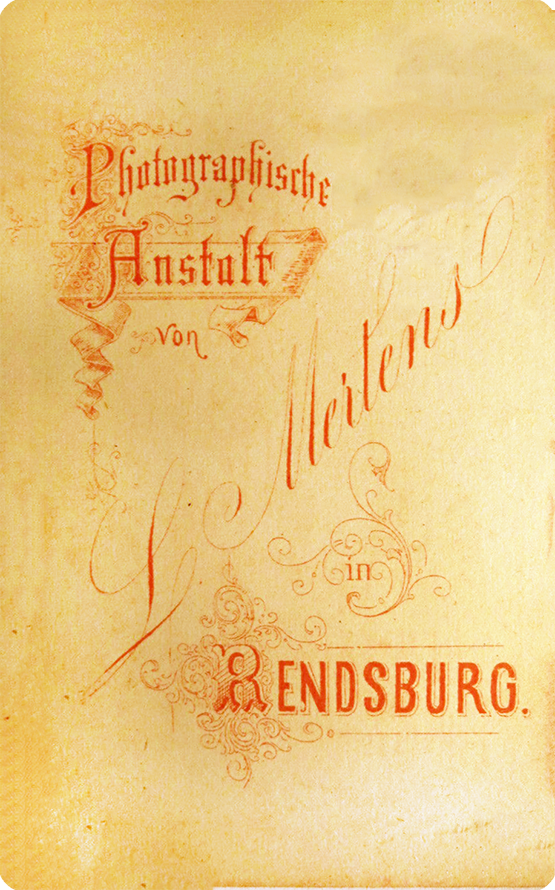 Photographische
Anstalt
von
L Mertens
in
RENDSBURG.